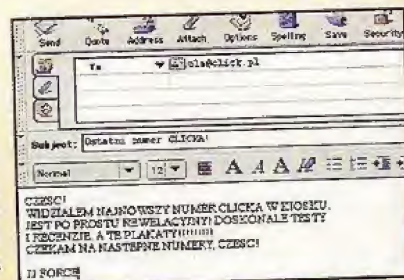 Send Quote Address Attach Options Spelling Save Security
To ola@click.pl
Subject: Ostatni numer CLICKA!
Normal 12 A A A
CZESC!
WIDZIALEM NAJNOWSZY NUMER CLICKA W KIOSKU.
JEST PO PROSTU REWELACYJNY! DOSKONALE TESTY
I RECENZJE, A TE PLAKATY!!!!!!!!!
CZEKAM NA NASTEPNE NUMERY, CZESC!
FORCE